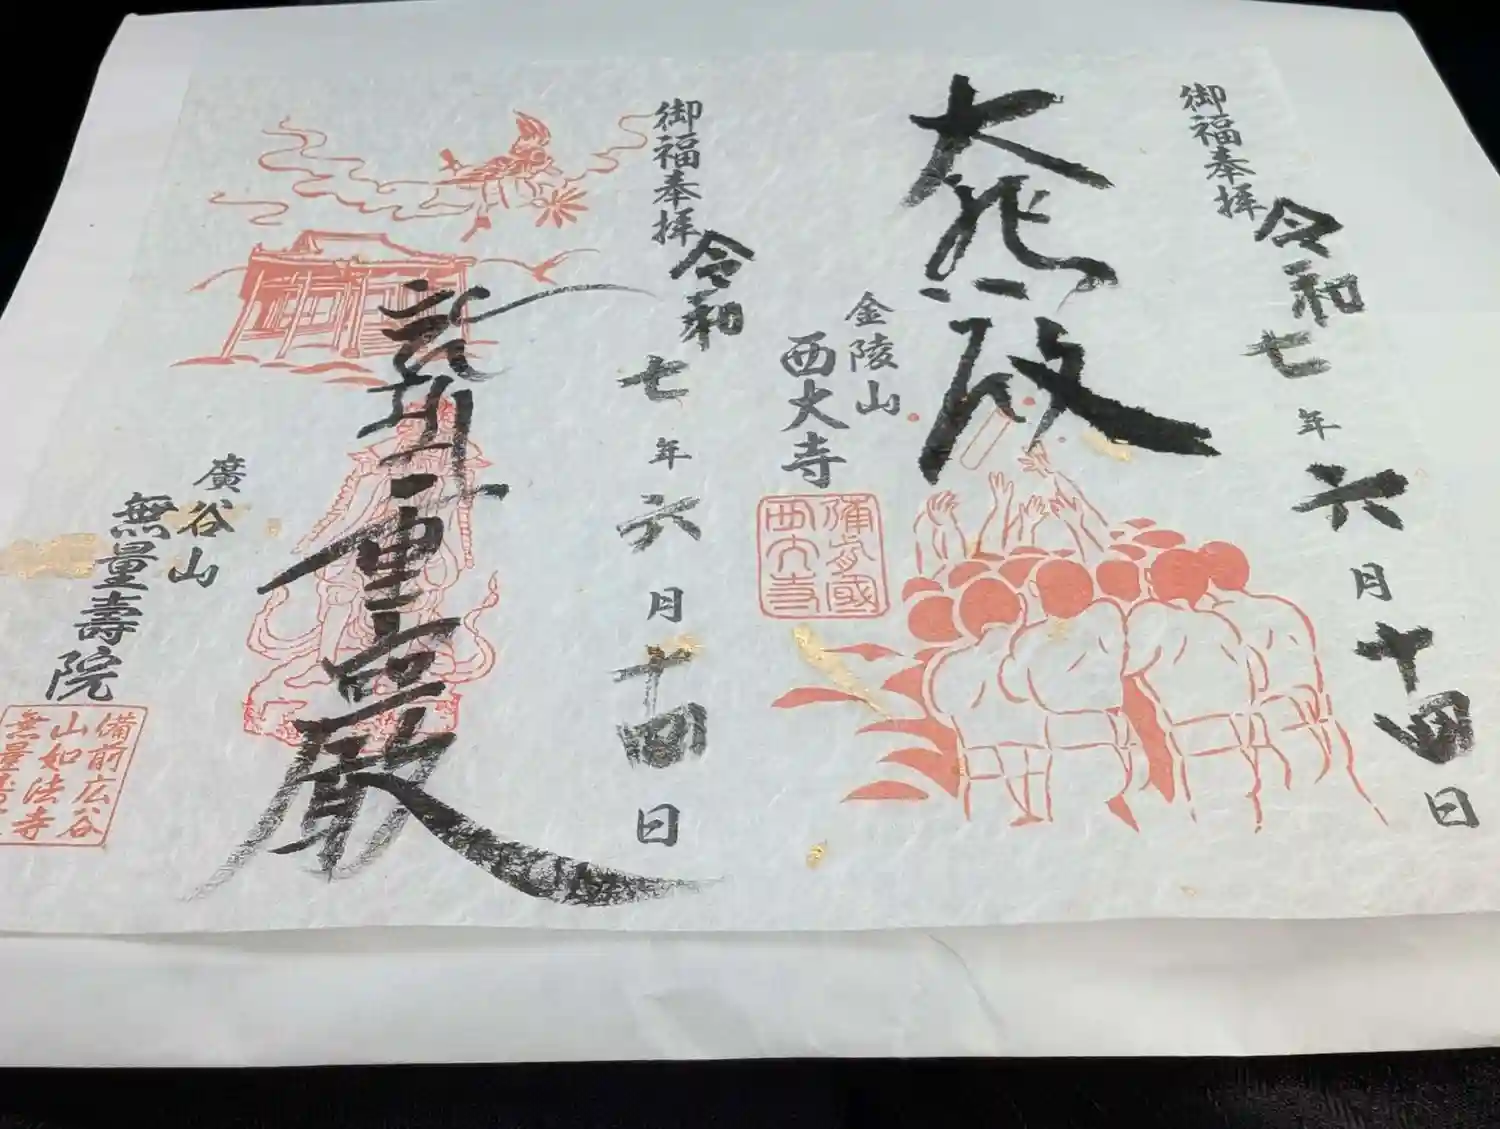 御福奉拝 令和七年六月十四日
大悲殿
金陵山
西大寺
備前國
西大寺
御福奉拝 令和七年六月十四日
廣谷山
無量壽院
備前広谷
山如法寺
無量